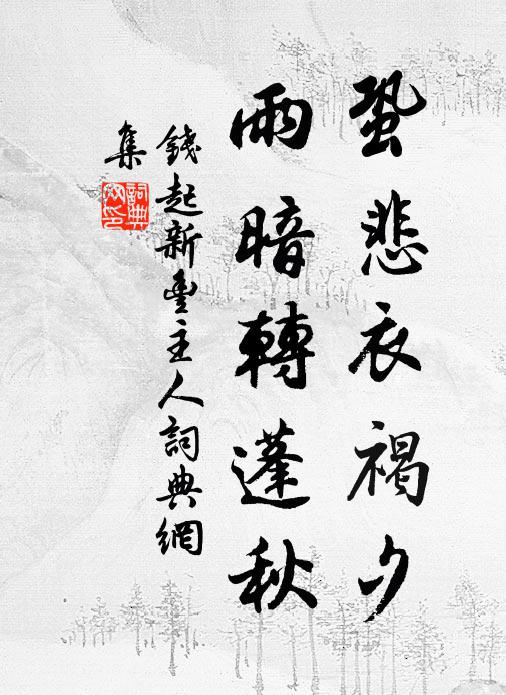 蛩悲衣褐夕
雨暗轉蓬秋
錢起新豐主人詞典網
集
詞典
网印